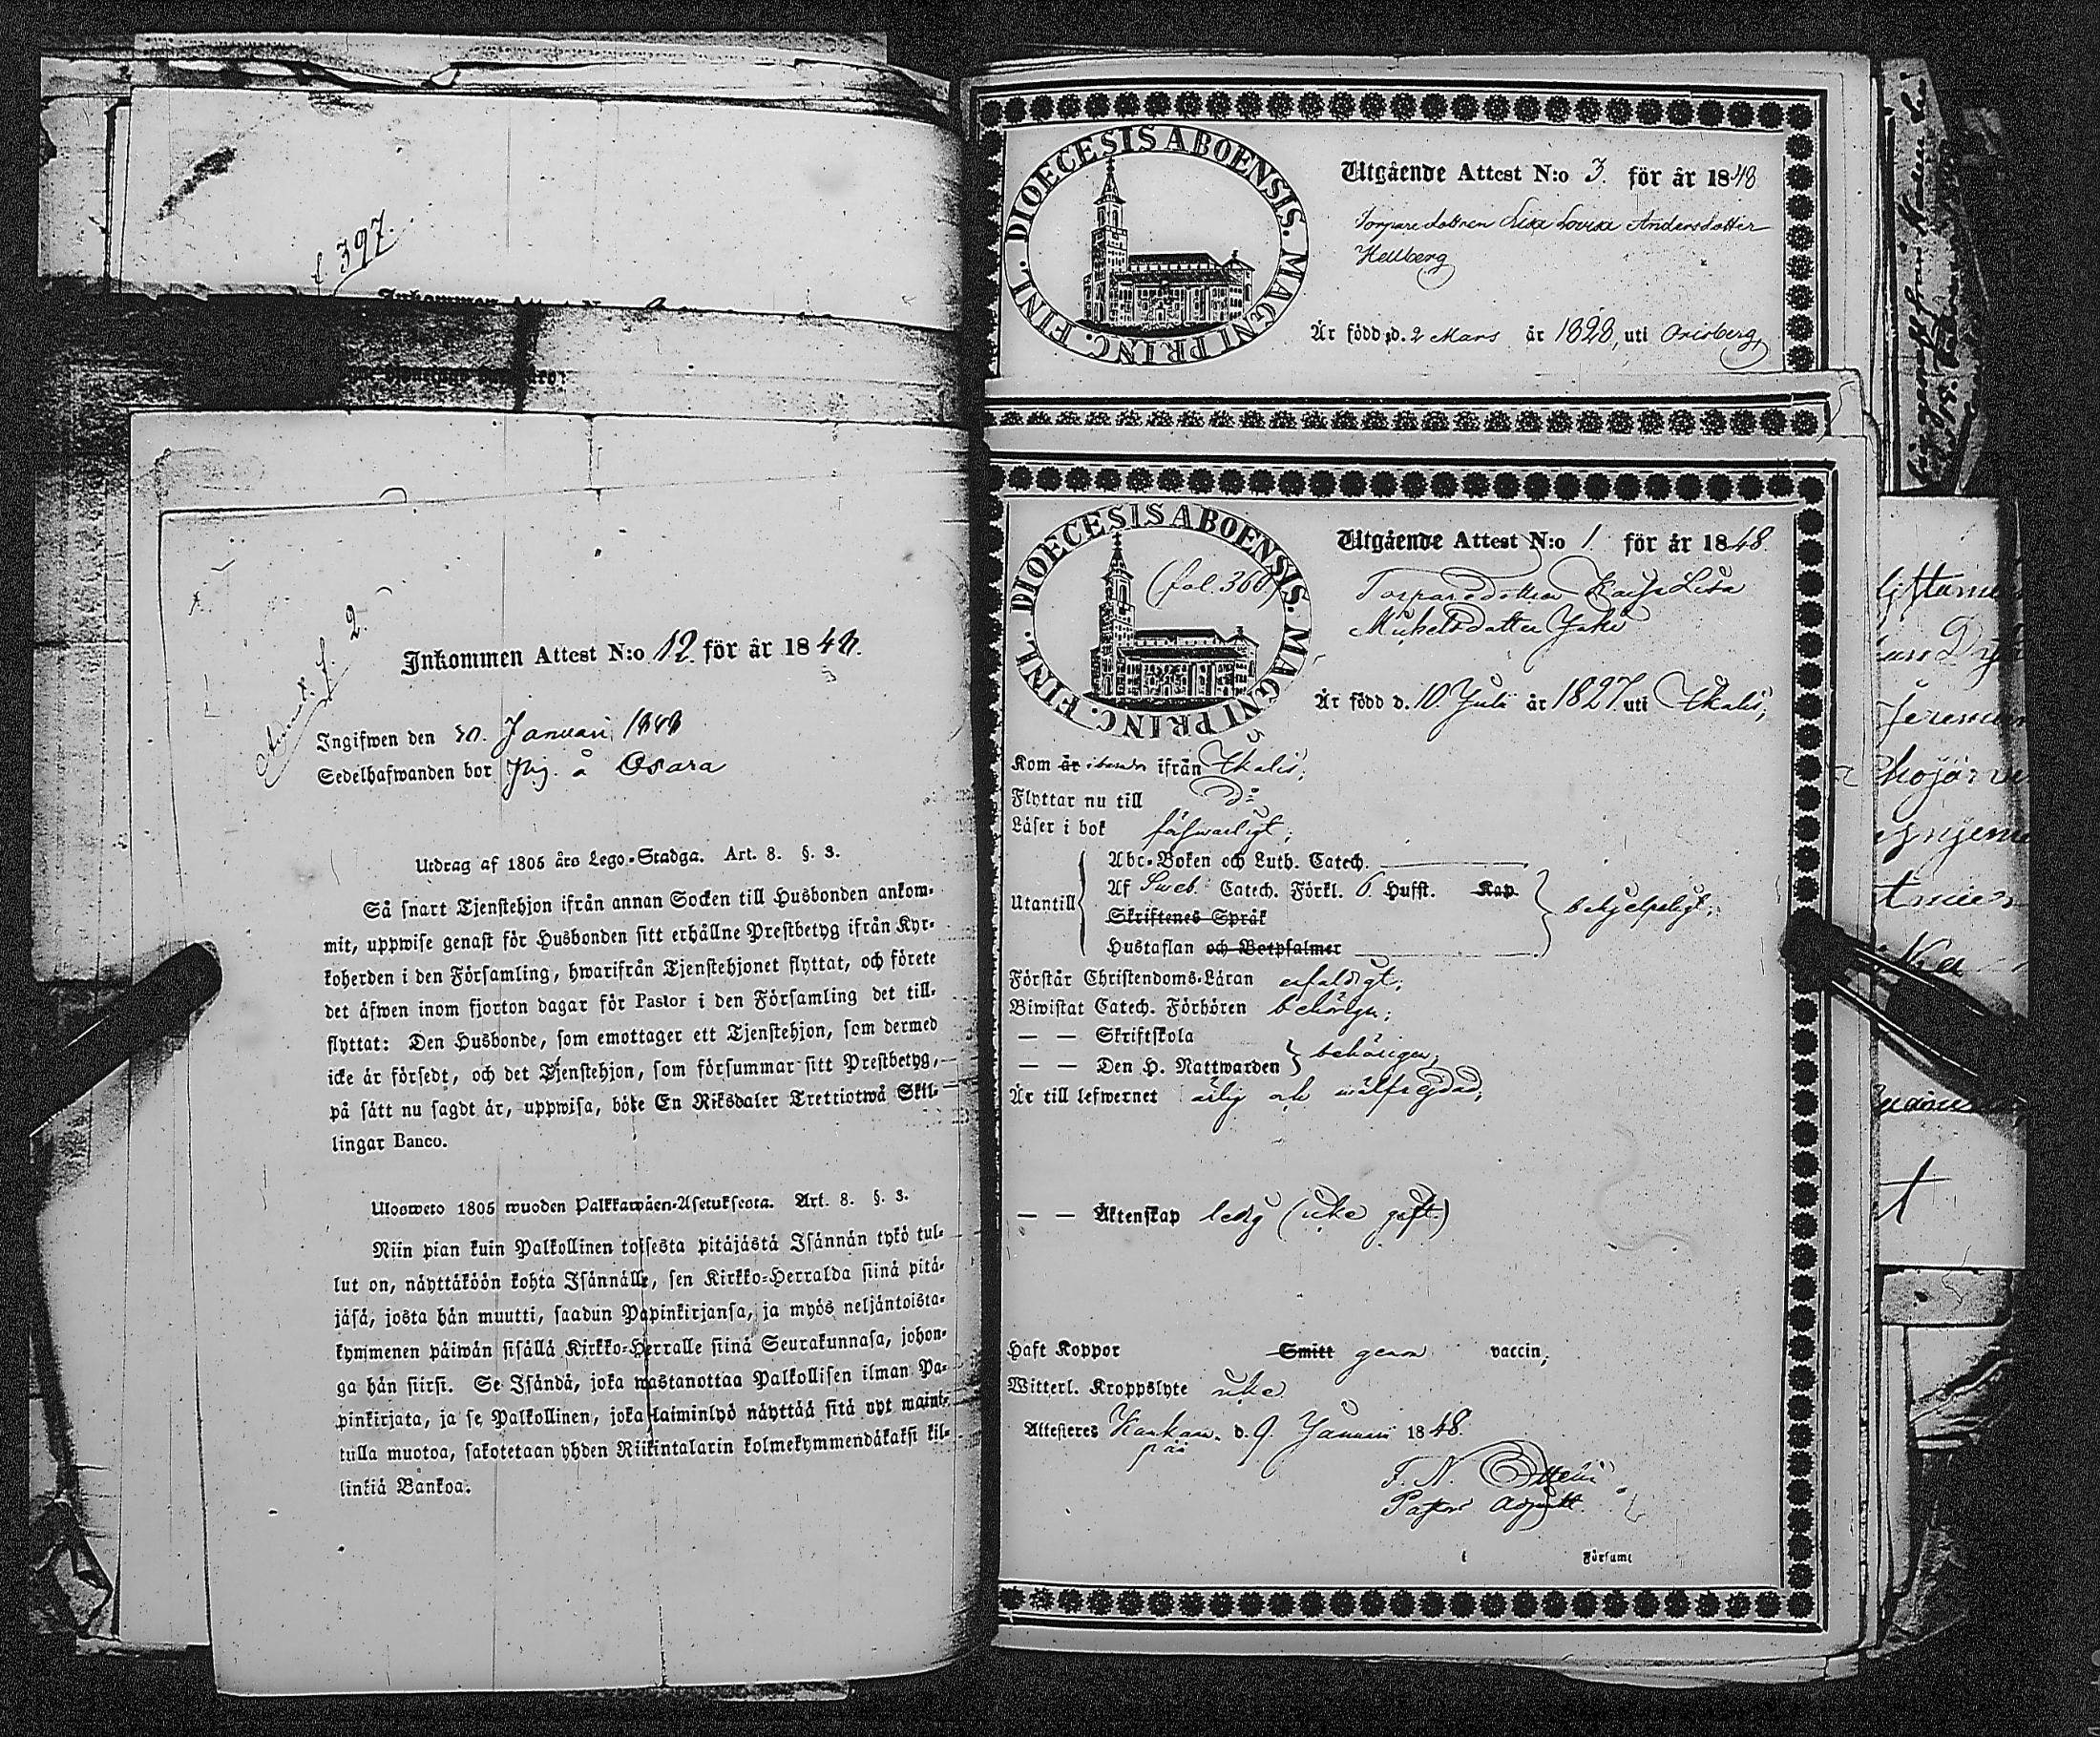 f 397.
Inkommen Attest N:o
f. 2.
Inkommen Attest N:o 12. för år 1848.
Ingifwen den 30. Januari 1848
Sedelhafwanden bor Pig. å Osara
Utdrag af 1805 års Lego-Stadga. Art. 8. §. 3.
Så snart Tjenstehjon ifrån annan Socken till Husbonden ankom-
mit, uppwise genast för Husbonden sitt erhållne Prestbetyg ifrån Kyr-
koherden i den Församling, hwarifrån Tjenstehjonet flyttat, och förete
det äfwen inom fjorton dagar för Pastor i den Församling det till-
flyttat: Den Husbonde, som emottager ett Tjenstehjon, som dermed
icke är försedt, och det Tjenstehjon, som försummar sitt Prestbetyg,
på sätt nu sagdt är, uppwisa, böte En Riksdaler Trettiotwå Skil-
lingar Banco.
Ulosweto 1805 wuoden Palkkawäen-Asetuksesta. Art. 8. §. 3.
Niin pian kuin Palkollinen toisesta pitäjästä Isännän tykö tul-
lut on, näyttäköön kohta Isännälle, sen Kirkko-Herralda siinä pitä-
jäsä, josta hän muutti, saadun Papinkirjansa, ja myös neljäntoista-
kymmenen päiwän sisällä Kirkko-Herralle siinä Seurakunnasa, johon-
ga hän siirsi. Se Isändä, joka wastanottaa Palkollisen ilman Pa-
pinkirjata, ja se Palkollinen, joka laiminlyö näyttää sitä nyt mainit-
tulla muotoa, sakotetaan yhden Riikintalarin kolmekymmendäkaksi kil-
linkiä Bankoa.
DIOECESIS ABOENSIS. MAGNI PRINC. FINL.
Utgående Attest N:o 3. för år 1848
Torpare dottren Lisa Lovisa Andersdotter
Hellberg
Är född d. 2 Mars år 1828, uti Orisberg,
DIOECESIS ABOENSIS. MAGNI PRINC. FINL.
(fol. 360.)
Utgående Attest N:o 1 för år 1848.
Torparedottren Kajsa Lisa
Mickelsdotter
Är född d. 10. Juli år 1827. uti Ikalis,
Kom år ifrån Ikalis,
Flyttar nu till Do
Läser i bok förswarligt,
Utantill
Abc-Boken och Luth. Catech.
Af Sweb. Catech. Förkl. 6. Hufst. Kap
Skriftenes Språk
Hustaflan och Botpsalmer
behjelpeligt,
Förstår Christendoms-Läran enfaldigt,
Biwistat Catech. Förhören behörigen,
— — Skriftskola
— — Den H. Nattwarden behörigen,
Är till lefwernet ärlig och wälfrejdad,
— — Äktenskap ledig (icke gift.)
Haft Koppor Smitt genom vaccin,
Witterl. Kroppslyte icke
Attesteras Kankaan- d. 9. Januari 1848.
pää
F. N.
Pastors Adjunkt.
i Församl